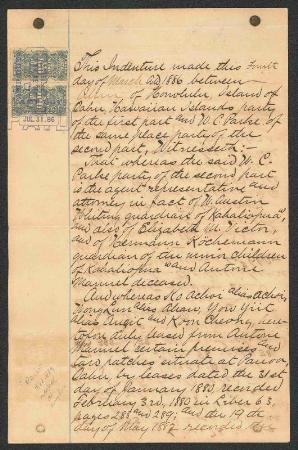 JUL 31. 86
This Indenture made this Fourth
day of March A.D. 1886 between
of Honolulu, Island of
Oahu, Hawaiian Islands party
of the first part and W.C. Parke of
the same place party of the
second part, Witnesseth:-
That whereas the said W. C.
Parke party of the second part
is the agent representative and
attorney in fact of W. Austin
Whiting guardian of
and also of Elizabeth M. Victor,
and of Hermann
guardian of the minor children
of and Antone
Manuel deceased.
And whereas alias Achoi,
alias Ahan, You
alias and Kon Cheong, here-
tofore duly leased from Antone
Manuel certain premises and
taro patches situate at Pauoa
Oahu, by leases dated the 31st
day of January 1880, recorded
February 3rd, 1880 in Liber 63,
pages 288 and 289; and the 19th
day of May 1882 recorded